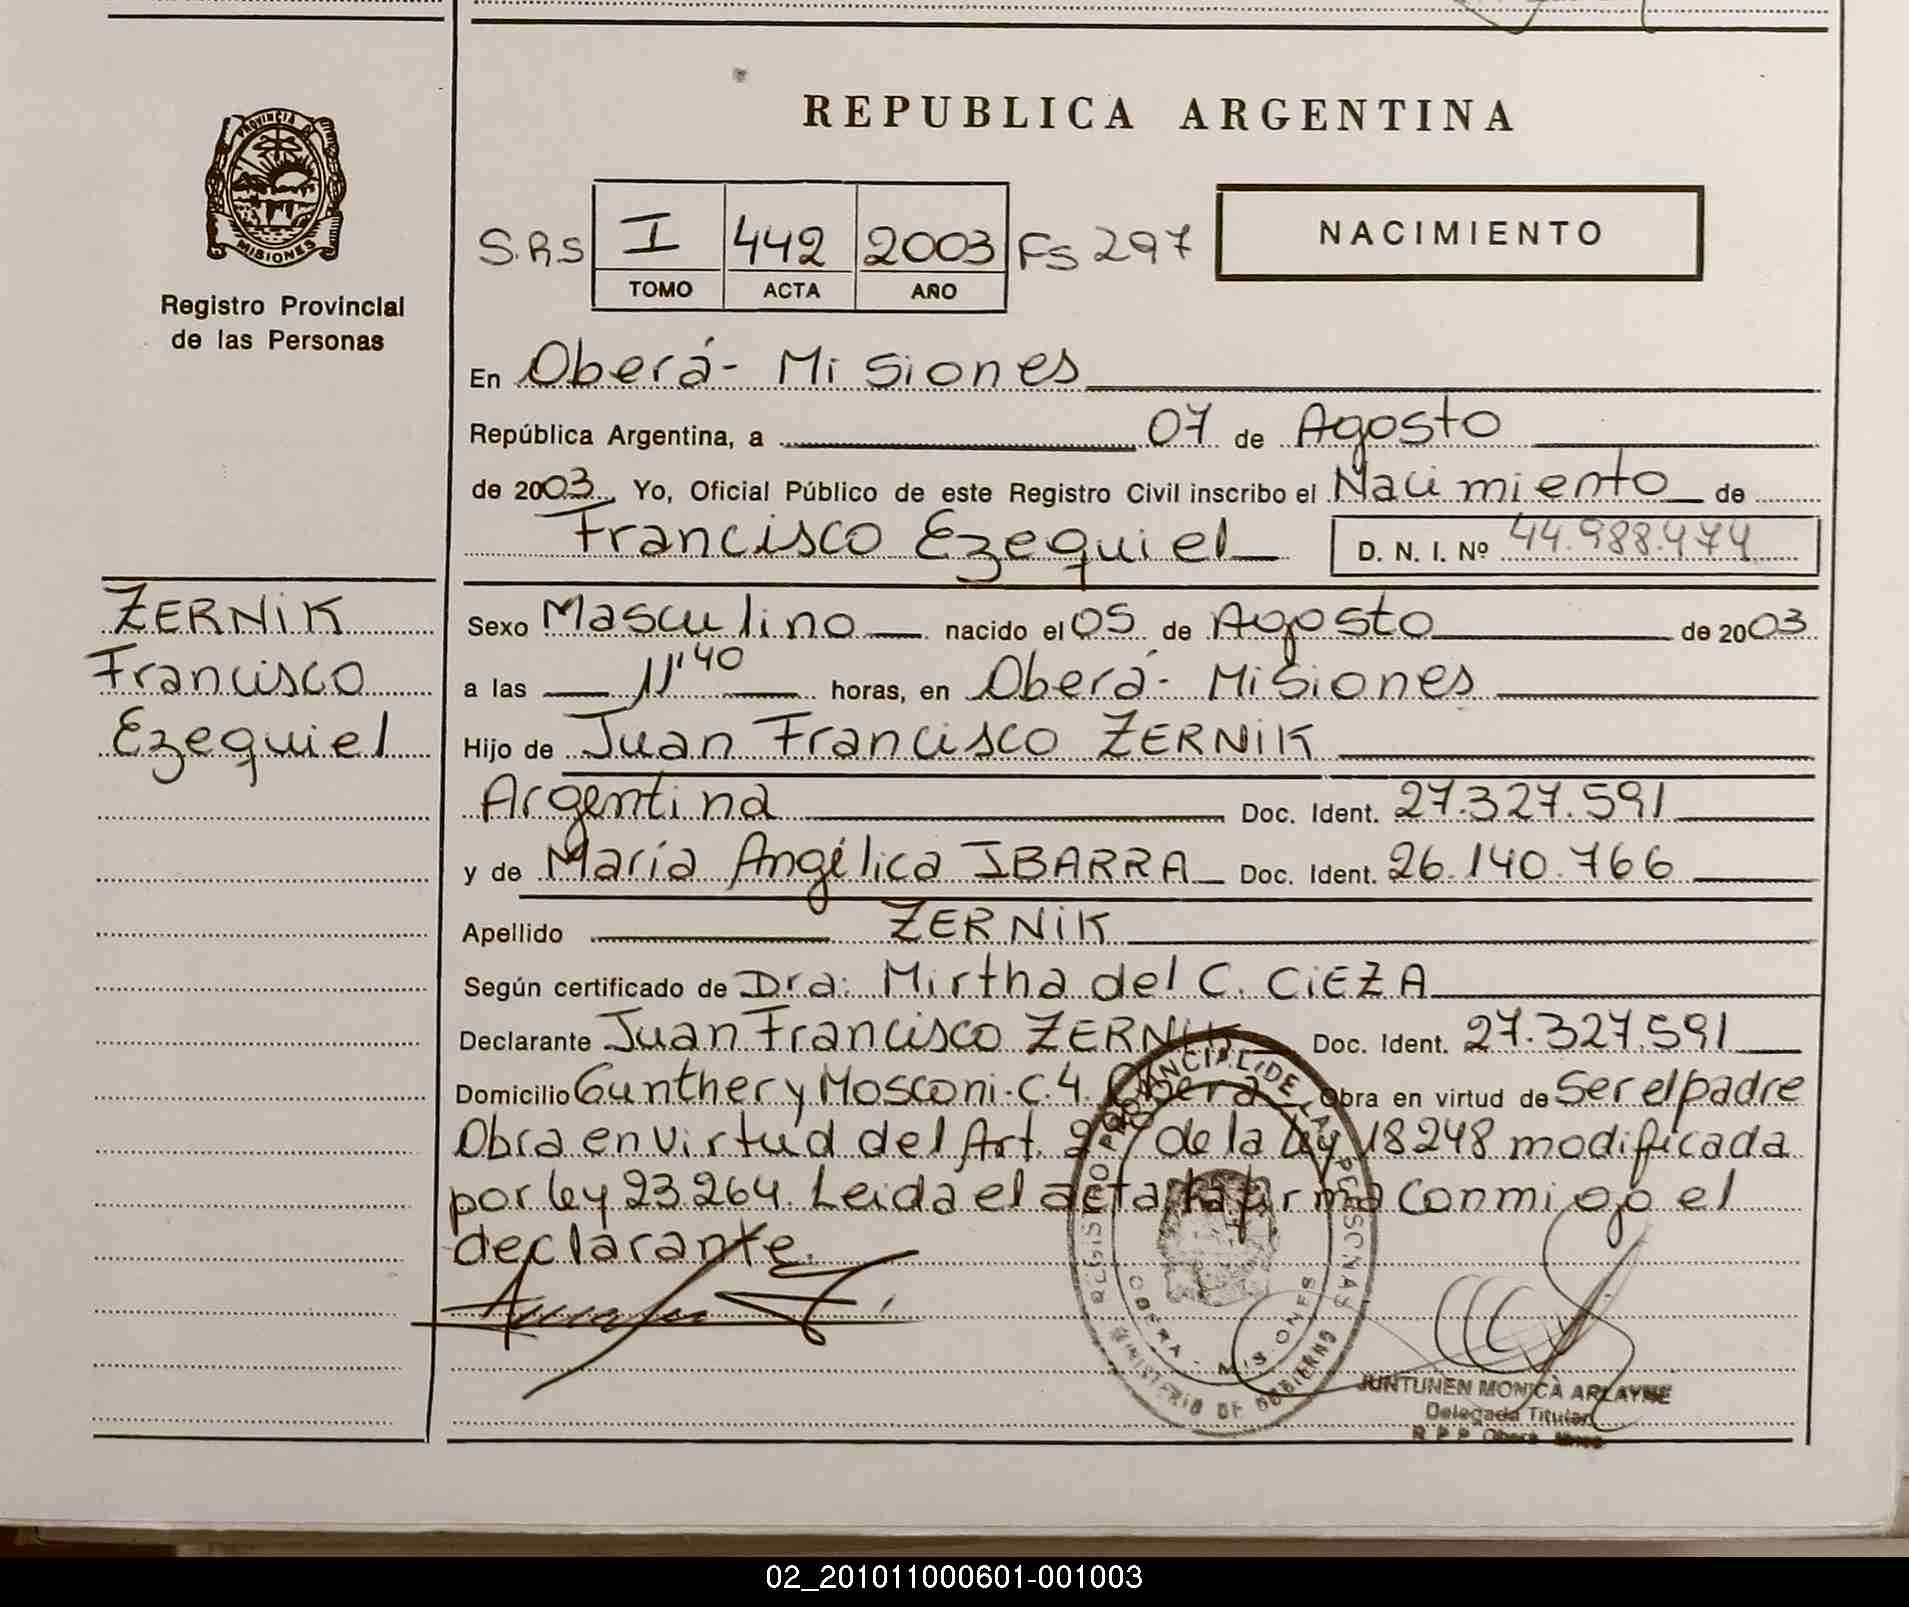 PROVINCIA D
MISIONES
Registro Provincial
de las Personas
REPUBLICA ARGENTINA
S.R.S I 442 2003 Fs 297
TOMO ACTA AÑO
NACIMIENTO
En Oberá - Misiones
República Argentina, a 07 de Agosto
de 2003. Yo, Oficial Público de este Registro Civil inscribo el Nacimiento de
Francisco Ezequiel D. N. I. Nº 44.988.474
ZERNIK
Francisco
Ezequiel
Sexo Masculino nacido el 05 de Agosto de 2003
a las 11'40 horas, en Oberá - Misiones
Hijo de Juan Francisco ZERNIK
Argentina Doc. Ident. 27.327.591
y de María Angélica IBARRA Doc. Ident. 26.140.766
Apellido ZERNIK
Según certificado de Dra: Mirtha del C. CIEZA
Declarante Juan Francisco ZERNIK Doc. Ident. 27.327.591
Domicilio Gunther y Mosconi - C. 4. Oberá Obra en virtud de Ser el padre
Obra en virtud del Art. de la ley 18248 modificada
por ley 23.264. Leida el acta la firma conmigo el
declarante.
REGISTRO PROVINCIAL DE LAS PERSONAS
OBERA - MISIONES
MINISTERIO DE GOBIERNO
JUNTUNEN MONICA ARLAYNE
Delegada Titular
R P P Obera Mnes
02_201011000601-001003